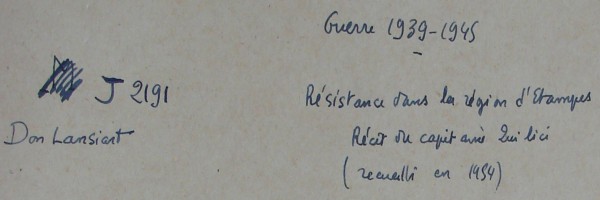 Guerre 1939-1945
J 2191
Résistance dans la région d'Etampes
Don Lansiart
Récit du capitaine Quilici
(recueilli en 1954)